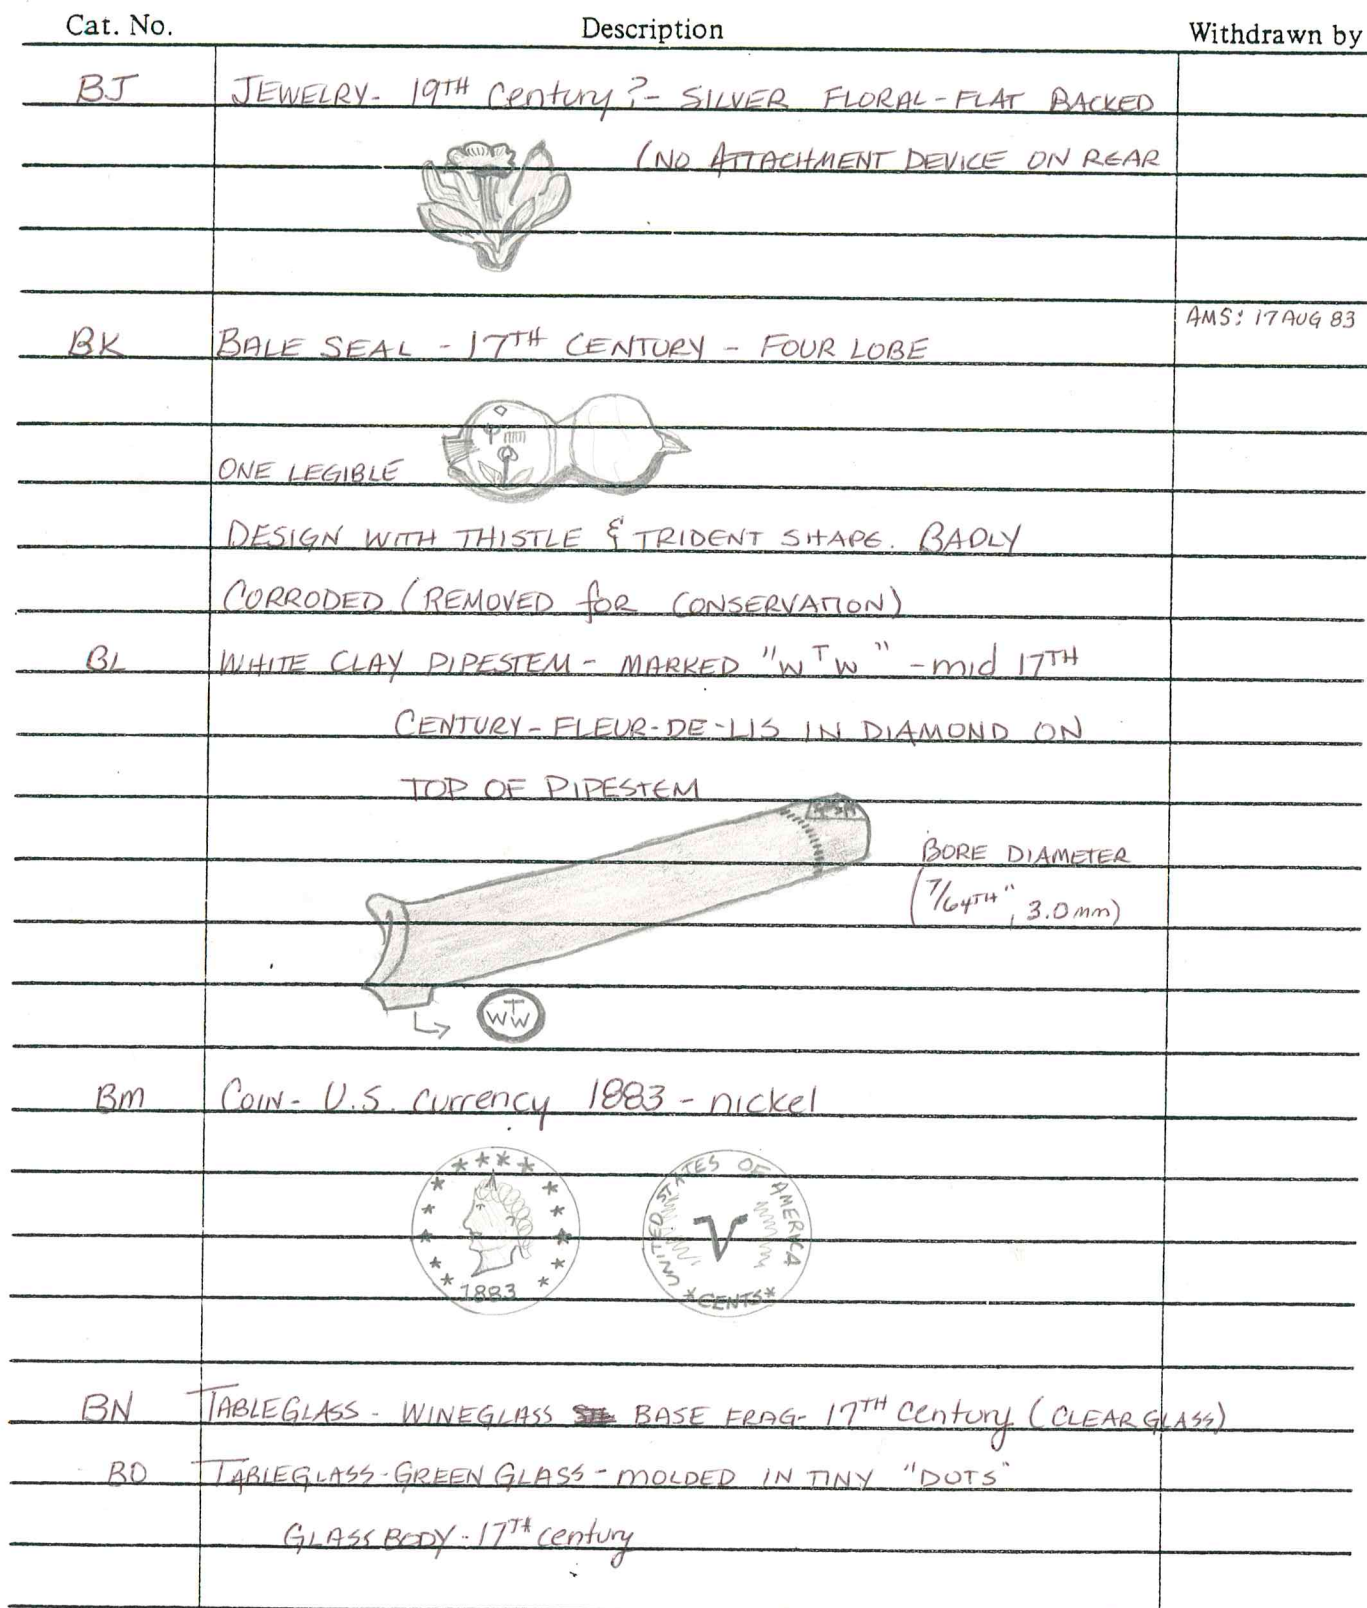 Cat. No. Description Withdrawn by
BJ JEWELRY- 19TH Century?- SILVER FLORAL-FLAT BACKED
(NO ATTACHMENT DEVICE ON REAR
AMS: 17 AUG 83
BK BALE SEAL - 17TH CENTURY - FOUR LOBE
ONE LEGIBLE
DESIGN WITH THISTLE & TRIDENT SHAPE. BADLY
CORRODED (REMOVED for CONSERVATION)
BL WHITE CLAY PIPESTEM - MARKED "WTW" - mid 17TH
CENTURY - FLEUR-DE-LIS IN DIAMOND ON
TOP OF PIPESTEM
BORE DIAMETER
(7/64TH", 3.0mm)
WTW
Bm COIN- U.S. currency 1883 - nickel
1883
UNITED STATES OF AMERICA
V
*CENTS*
BN TABLEGLASS - WINEGLASS BASE FRAG- 17TH Century (CLEAR GLASS)
BO TABLEGLASS-GREEN GLASS-MOLDED IN TINY "DOTS"
GLASS BODY-17TH century